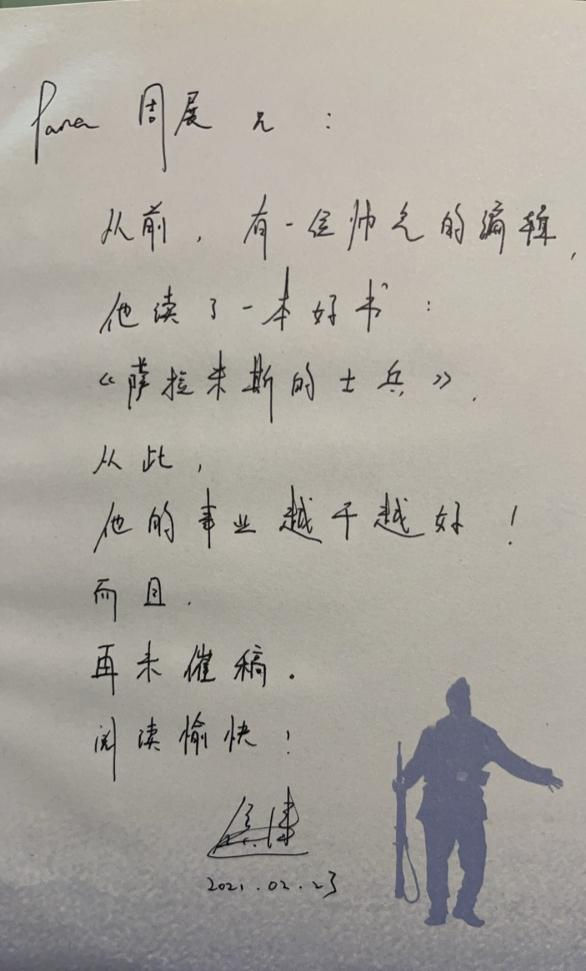 Para 周展 兄：
从前，有一位帅气的编辑，
他读了一本好书：
《萨拉米斯的士兵》，
从此，
他的事业越干越好！
而且，
再未催稿。
阅读愉快！
2021.02.23